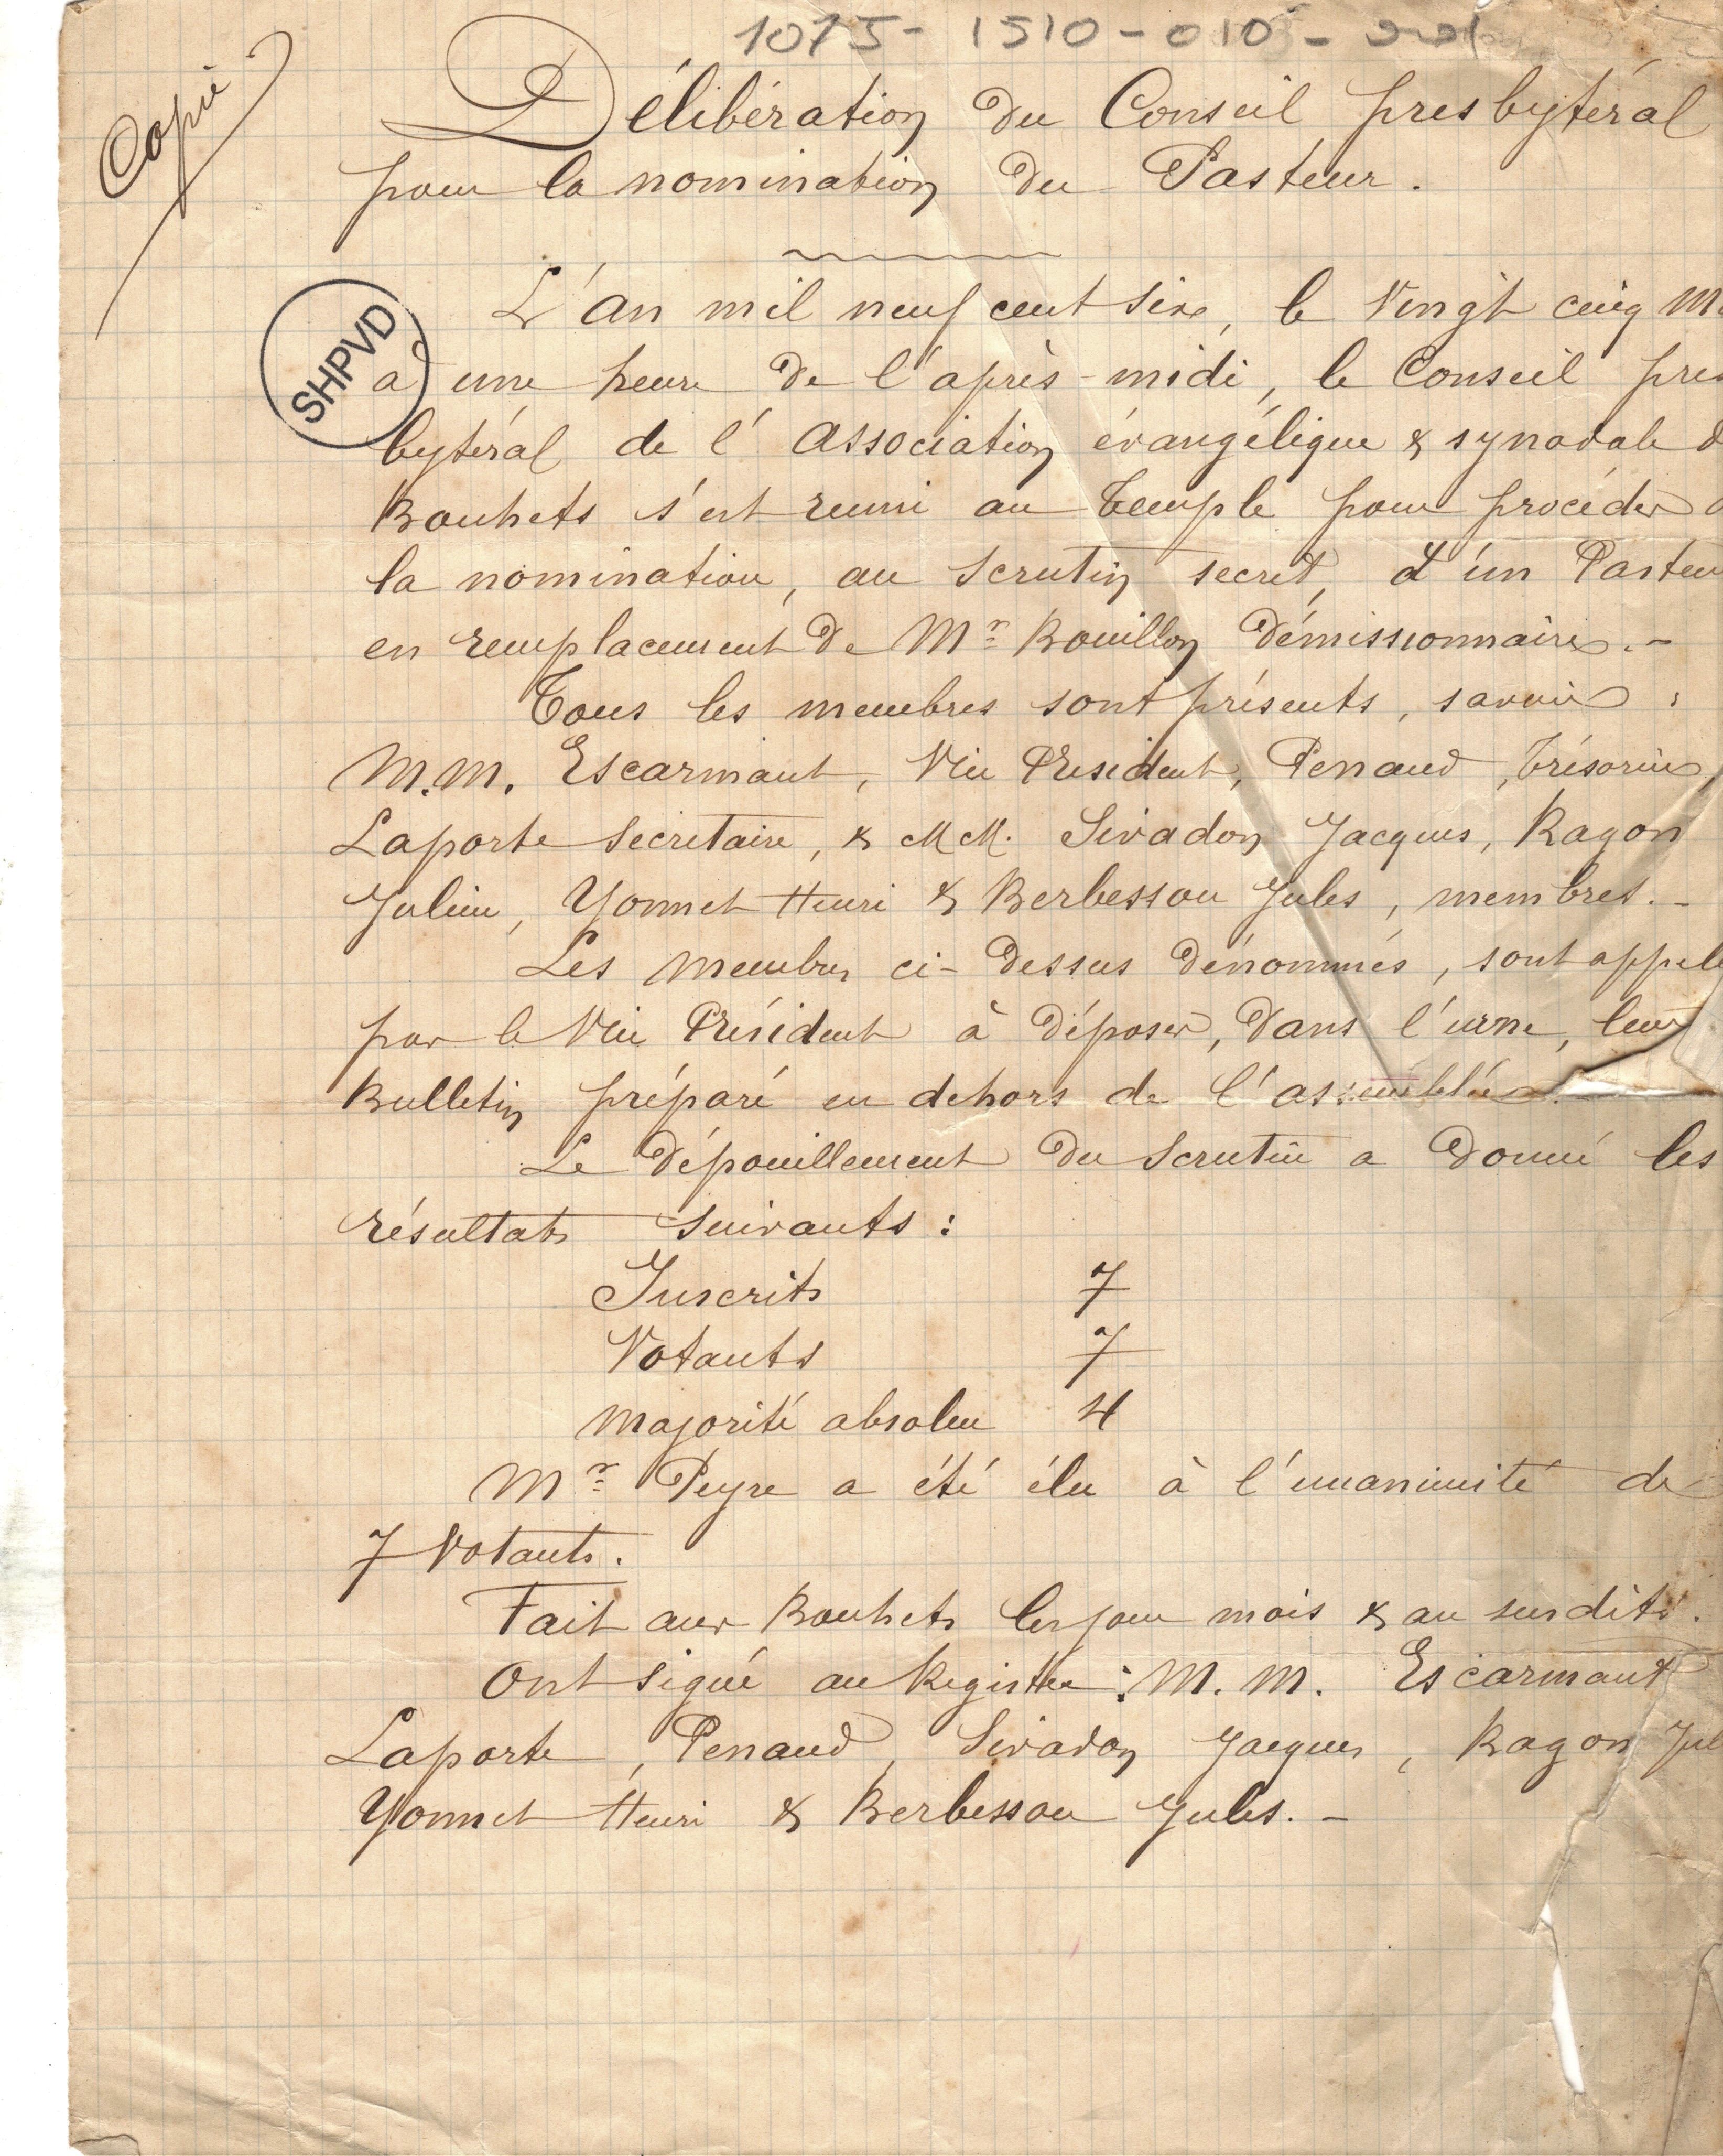 1075-1510-010-221
Copie
Délibération du Conseil presbytéral
pour la nomination du Pasteur.
L'An mil neuf cent six, le Vingt cinq M
SHPVD
à une heure de l'après-midi, le Conseil pres
bytéral de l'Association évangélique & synodale d
Bouhets s'est reuni au Temple pour procéder
la nomination, au scrutin secret, d'un Pasteur
en remplacement de Mr Bouillon démissionnaire.-
Tous les membres sont présents, savoir :
M.M. Escarmant, Vice Président, Penaud, Trésorier,
Laporte Secrétaire, & MM. Sivadon Jacques, Ragon
Julien, Yonnet Henri & Berbesson Jules, membres.-
Les membres ci-dessus dénommés, sont appelé
par le Vice Président à déposer, dans l'urne, leur
Bulletin préparé en dehors de l'assemblée.
Le dépouillement du Scrutin a donné les
résultats suivants :
Inscrits 7
Votants 7
Majorité absolue 4
Mr Peyre a été élu à l'unanimité de
7 Votants.
Fait aux Bouhets les jour mois & an susdits.
Ont signé au Registre : M.M. Escarmant
Laporte, Penaud, Sivadon Jacques, Ragon Jul
Yonnet Henri & Berbesson Jules.-